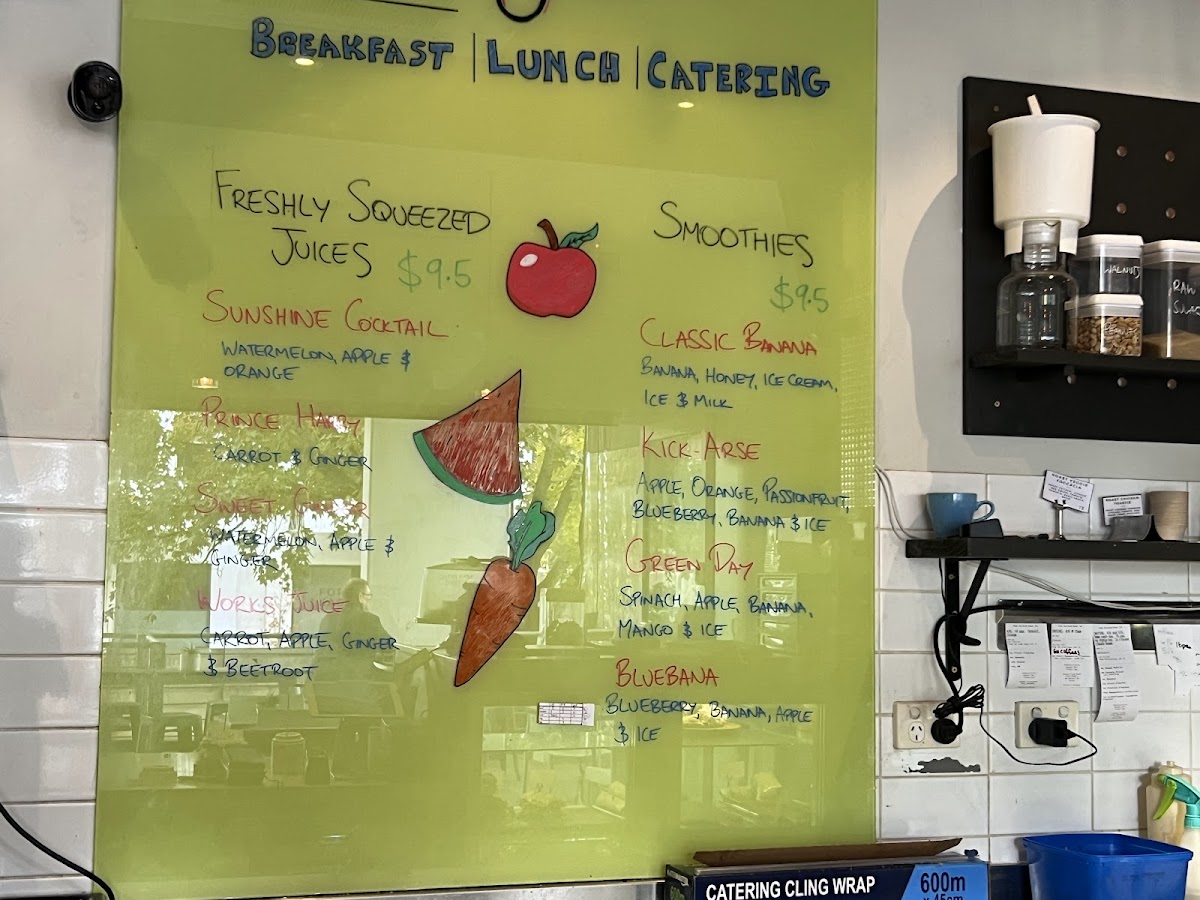 BREAKFAST | LUNCH | CATERING
FRESHLY SQUEEZED
JUICES $9.5
SUNSHINE COCKTAIL
WATERMELON, APPLE &
ORANGE
PRINCE HARRY
CARROT & GINGER
SWEET GINGER
WATERMELON, APPLE &
GINGER
WORKS JUICE
CARROT, APPLE, GINGER
& BEETROOT
SMOOTHIES
$9.5
CLASSIC BANANA
BANANA, HONEY, ICE CREAM,
ICE & MILK
KICK-ARSE
APPLE, ORANGE, PASSIONFRUIT,
BLUEBERRY, BANANA & ICE
GREEN DAY
SPINACH, APPLE, BANANA,
MANGO & ICE
BLUEBANA
BLUEBERRY, BANANA, APPLE
& ICE
WALNUTS
RAW
CATERING CLING WRAP
600m
x 45cm